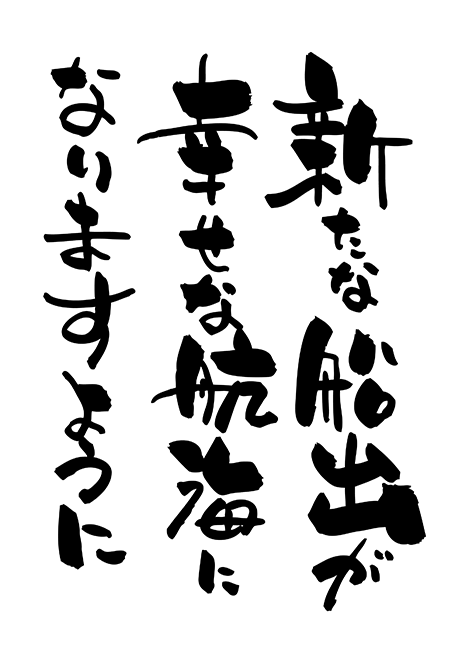 新たな船出が
幸せな航海に
なりますように